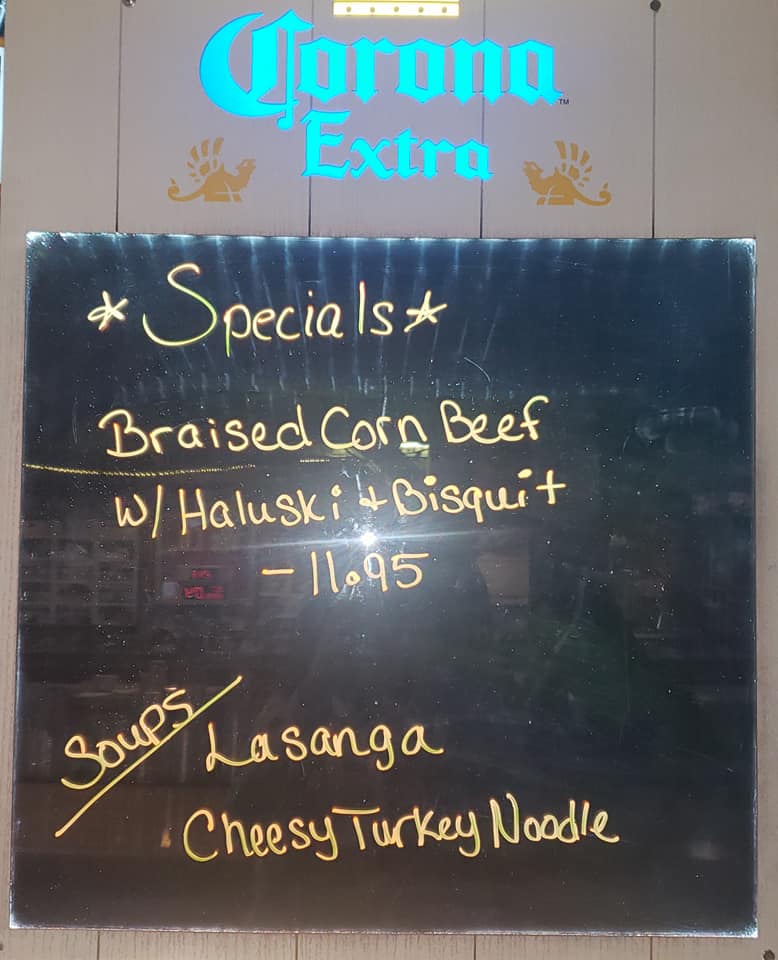 Corona
Extra
TM
*Specials*
Braised Corn Beef
w/ Haluski + Bisquit
- 11.95
Soups/ Lasanga
Cheesy Turkey Noodle